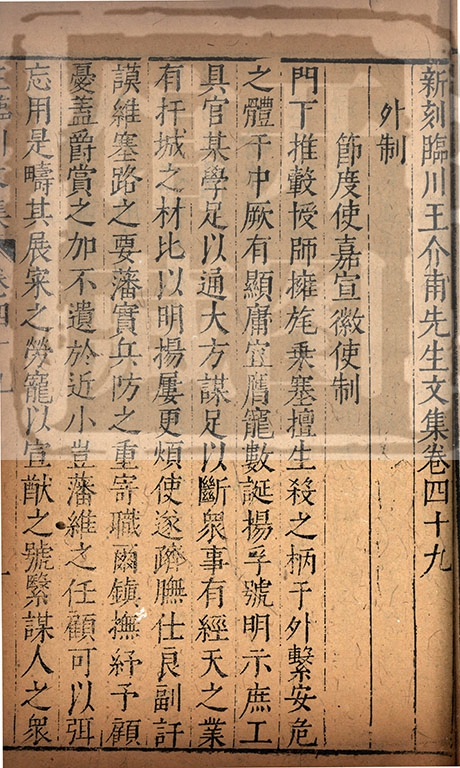 新刻臨川王介甫先生文集卷四十九
外制
節度使嘉宣徽使制
門下推轂授師擁旄乗塞擅生殺之柄于外繫安危
之體于中厥有顯庸宜膺寵數誕揚孚號明示庶工
具官某學足以通大方謀足以斷衆事有經天之業
有扞城之材比以明揚屢更煩使遂躋膴仕良副訏
謨維塞路之要藩實兵防之重寄職爾鎮撫紓予顧
憂盖爵賞之加不遺於近小豈藩維之任顧可以弭
忘用是疇其展寀之勞寵以宣猷之號繄謀人之衆